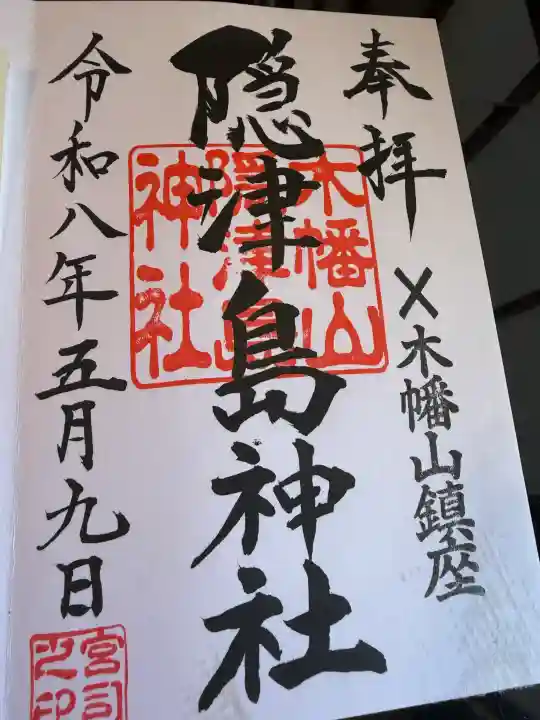 奉拝
〆木幡山鎮座
隠津島神社
木幡山
隠津島
神社
令和八年五月九日
宮司
之印